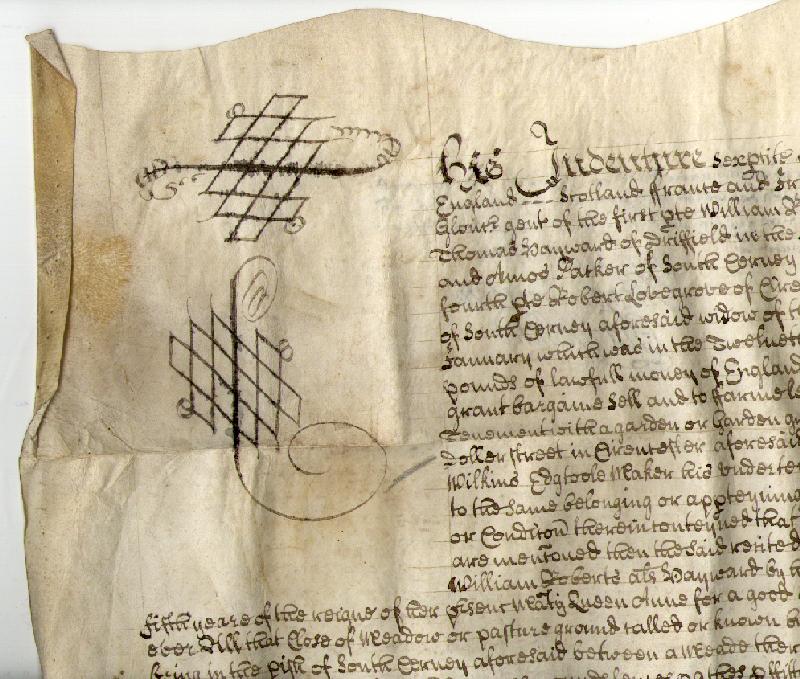 his Indenture Sexptite
England Scotland ffrance and Ire
Glouc gent of the first pte William R
Thomas Hayward of Driffield in the
and Amos Parker of South Cerney
fourth pte Robert Lovegrove of Cire
of South Cerney aforesaid widow of t
January which was in the Twelveth
pounds of lawfull money of England
grant bargaine Sell and to farme le
Tenement with a garden or Garden gr
Doller street in Cirencester aforesaid
Wilkins Edgtoole Maker his underte
to the same belonging or apperteyning
or Condicon therein conteyned that
are mentioned then the said recited
William Roberts als Hayward by
fifth yeare of the reigne of her psent Maty Queen Anne for a good
ever All that Close of Meadow or pasture ground called or known b
lying in the pish of South Cerney aforesaid between a Meade ther